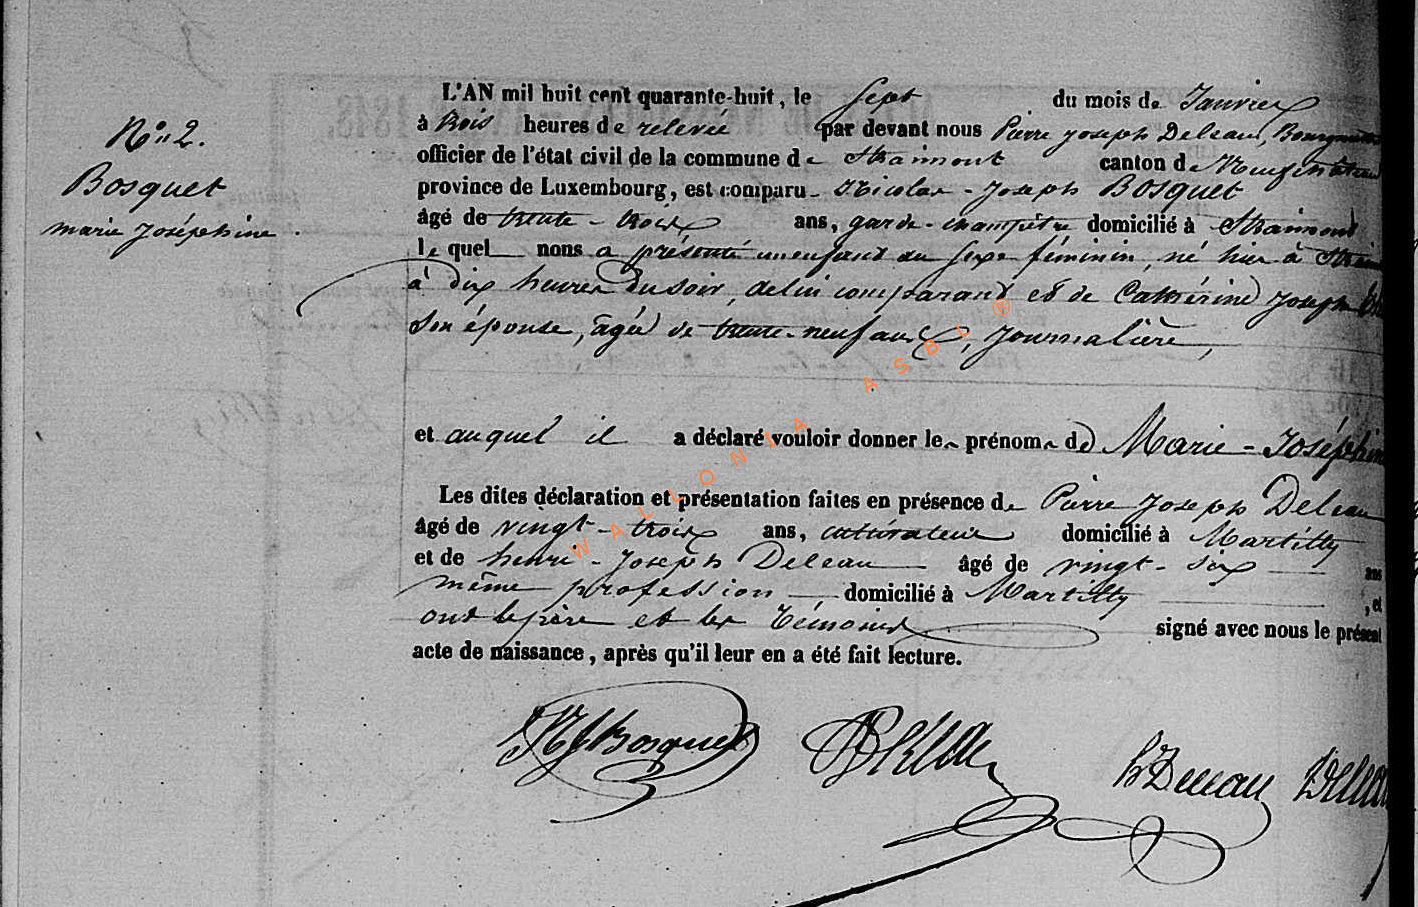 N° 2.
Bosquet
marie Joséphine.
L'AN mil huit cent quarante-huit, le Sept du mois de Janvier
à trois heures de relevée par devant nous Pierre Joseph Deleau, Bourgmestre
officier de l'état civil de la commune de Straimont canton de Neufchâteau
province de Luxembourg, est comparu Nicolas-Joseph Bosquet
âgé de trente-trois ans, garde-champêtre domicilié à Straimont
lequel nous a présenté un enfant du Sexe féminin, né hier à
à dix heures du soir, de lui comparant et de Catherine Joseph
Son épouse, âgée de trente-neuf ans, Journalière,
et auquel il a déclaré vouloir donner les prénoms de Marie-Joséphine
Les dites déclaration et présentation faites en présence de Pierre Joseph Deleau
âgé de vingt-trois ans, cultivateur domicilié à Martilly
et de henri-Joseph Deleau âgé de vingt-six ans
même profession domicilié à Martilly, et
ont le père et les témoins signé avec nous le présent
acte de naissance, après qu'il leur en a été fait lecture.
NJBosquet hDeleau
WALLONIA ASBL ®